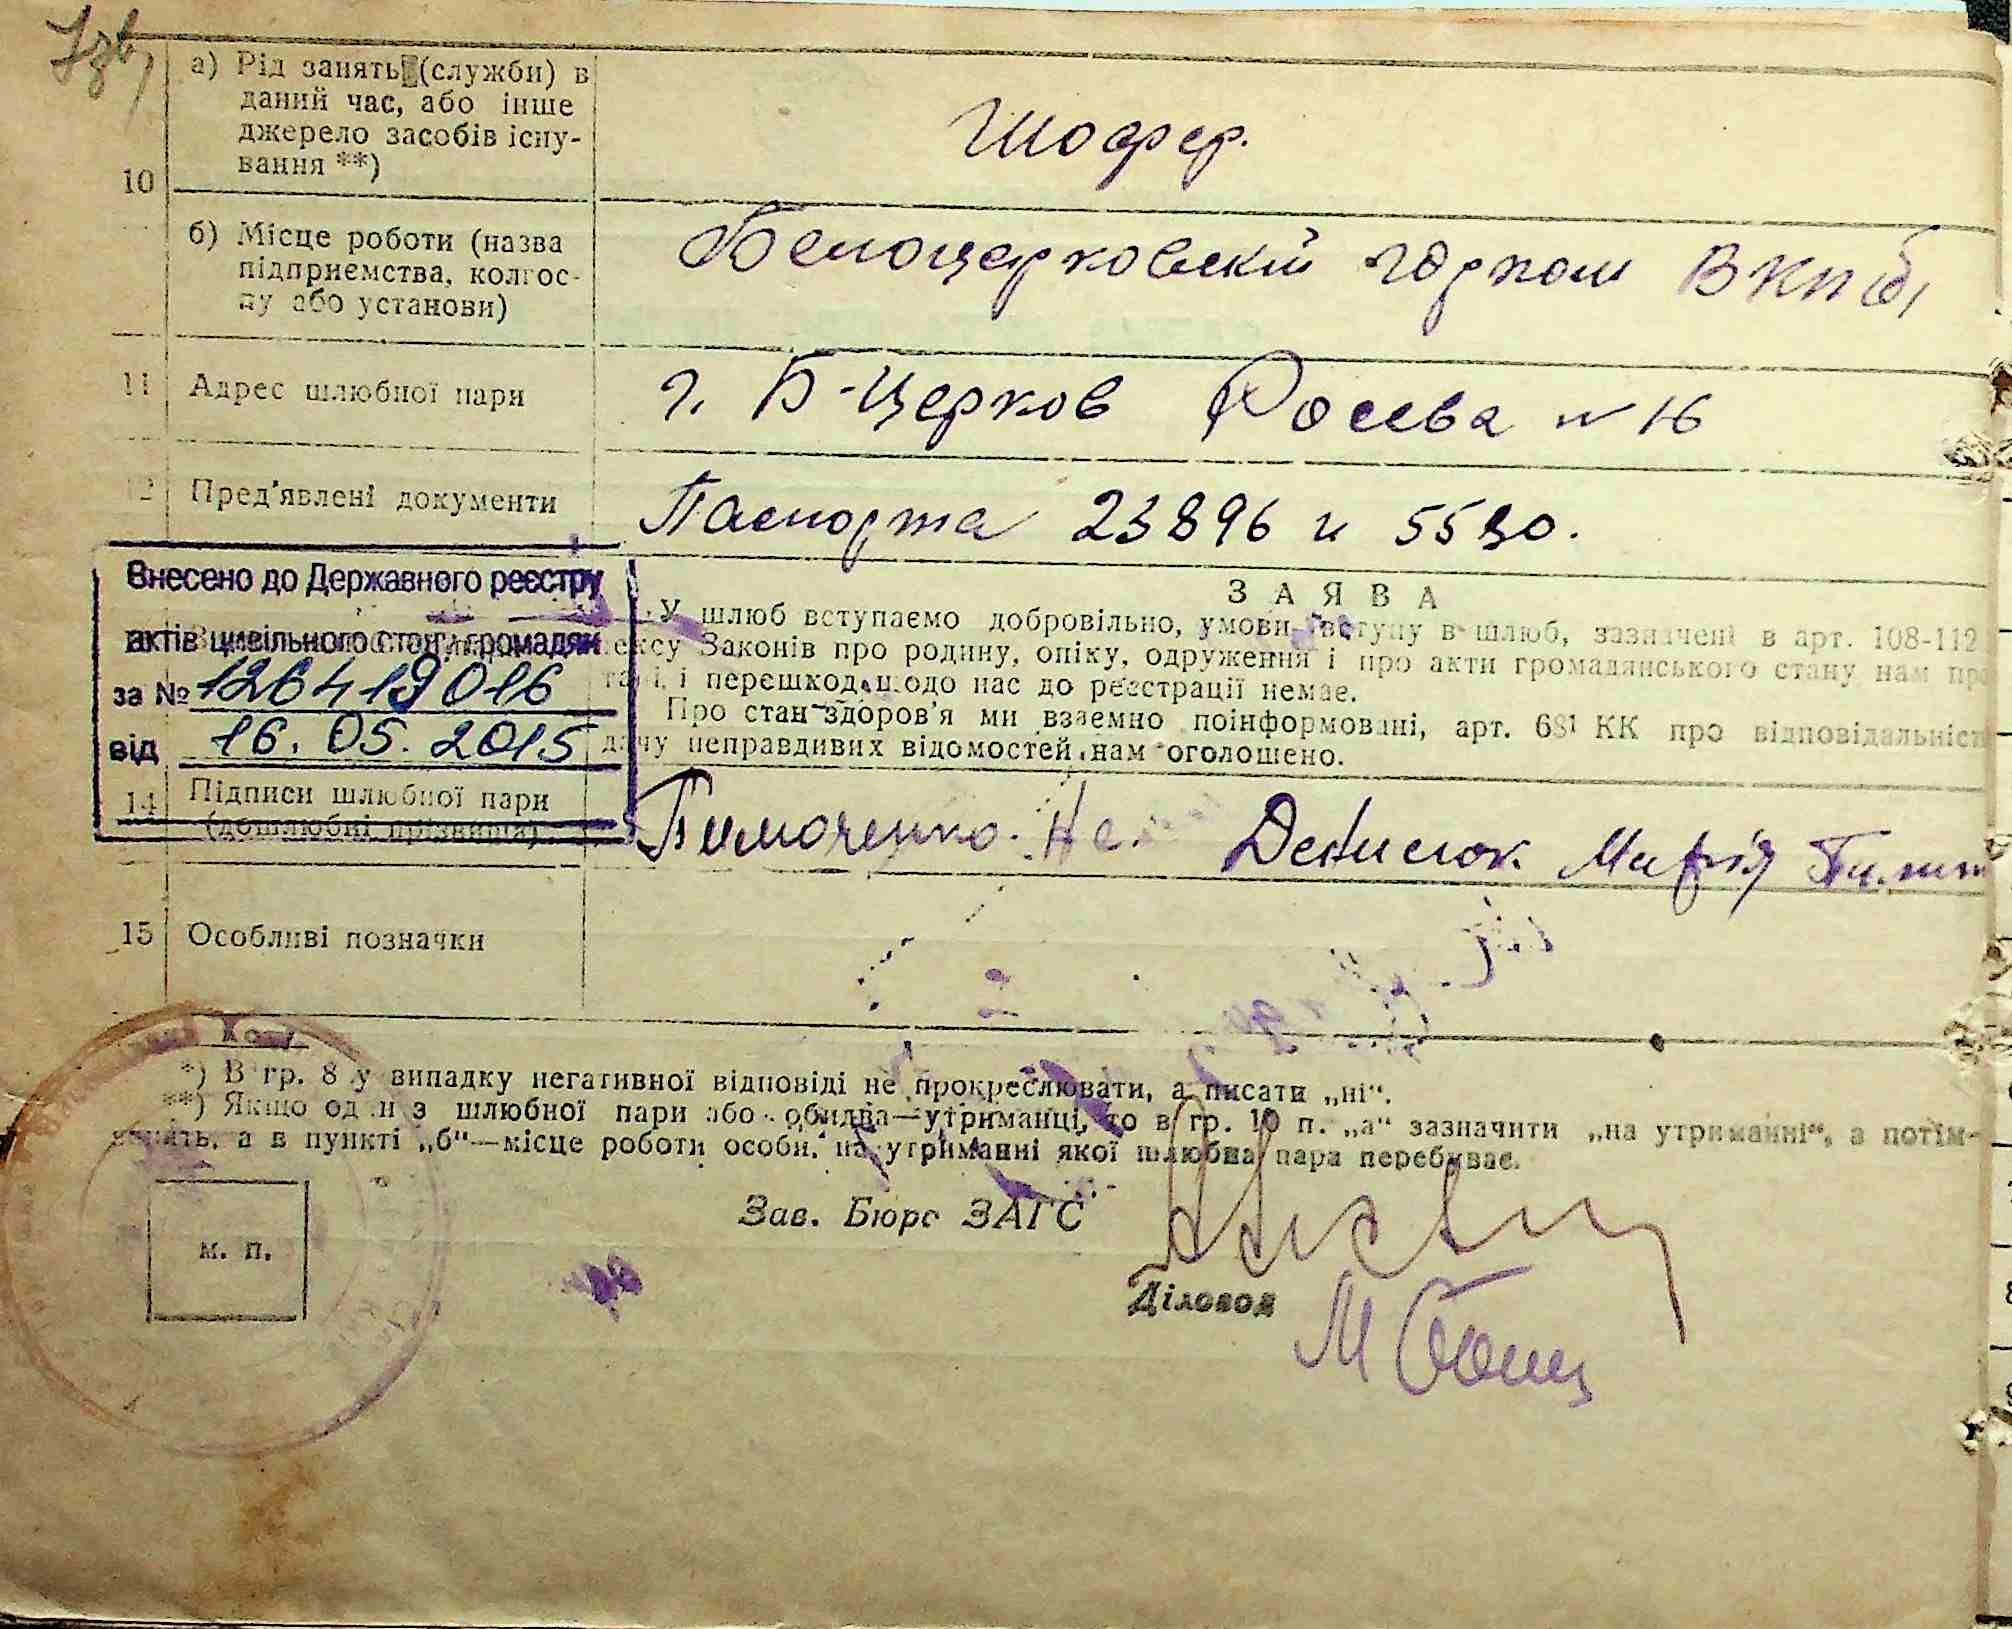 а) Рід занять (служби) в
даний час, або інше
джерело засобів існу-
вання **)
Шофер.
10
б) Місце роботи (назва
підприємства, колгос-
пу або установи)
Белоцерковскій горком ВКП(б)
11 Адрес шлюбної пари
г. Б-Церков Росева № 16
12 Пред'явлені документи
Паспорта 23896 и 5530.
Внесено до Державного реєстру
актів цивільного стану громадян
за № 126419016
від 16.05.2015
ЗАЯВА
У шлюб вступаємо добровільно, умови вступу в шлюб, зазначені в арт. 108-112
ексу Законів про родину, опіку, одруження і про акти громадянського стану нам
і перешкод щодо нас до реєстрації немає.
Про стан здоров'я ми взаємно поінформовані, арт. 681 КК про відповідальніст
дачу неправдивих відомостей нам оголошено.
14 Підписи шлюбної пари
(дошлюбні прізвища)
Тимоченко. Денисюк Марія
15 Особливі позначки
*) В гр. 8 у випадку негативної відповіді не прокреслювати, а писати „ні“.
**) Якщо один з шлюбної пари або обидва—утриманці, то в гр. 10 п. „а“ зазначити „на утриманні“, а потім
а в пункті „б“—місце роботи особи, на утриманні якої шлюбна пара перебуває.
Зав. Бюро ЗАГС
м. п.
Діловод